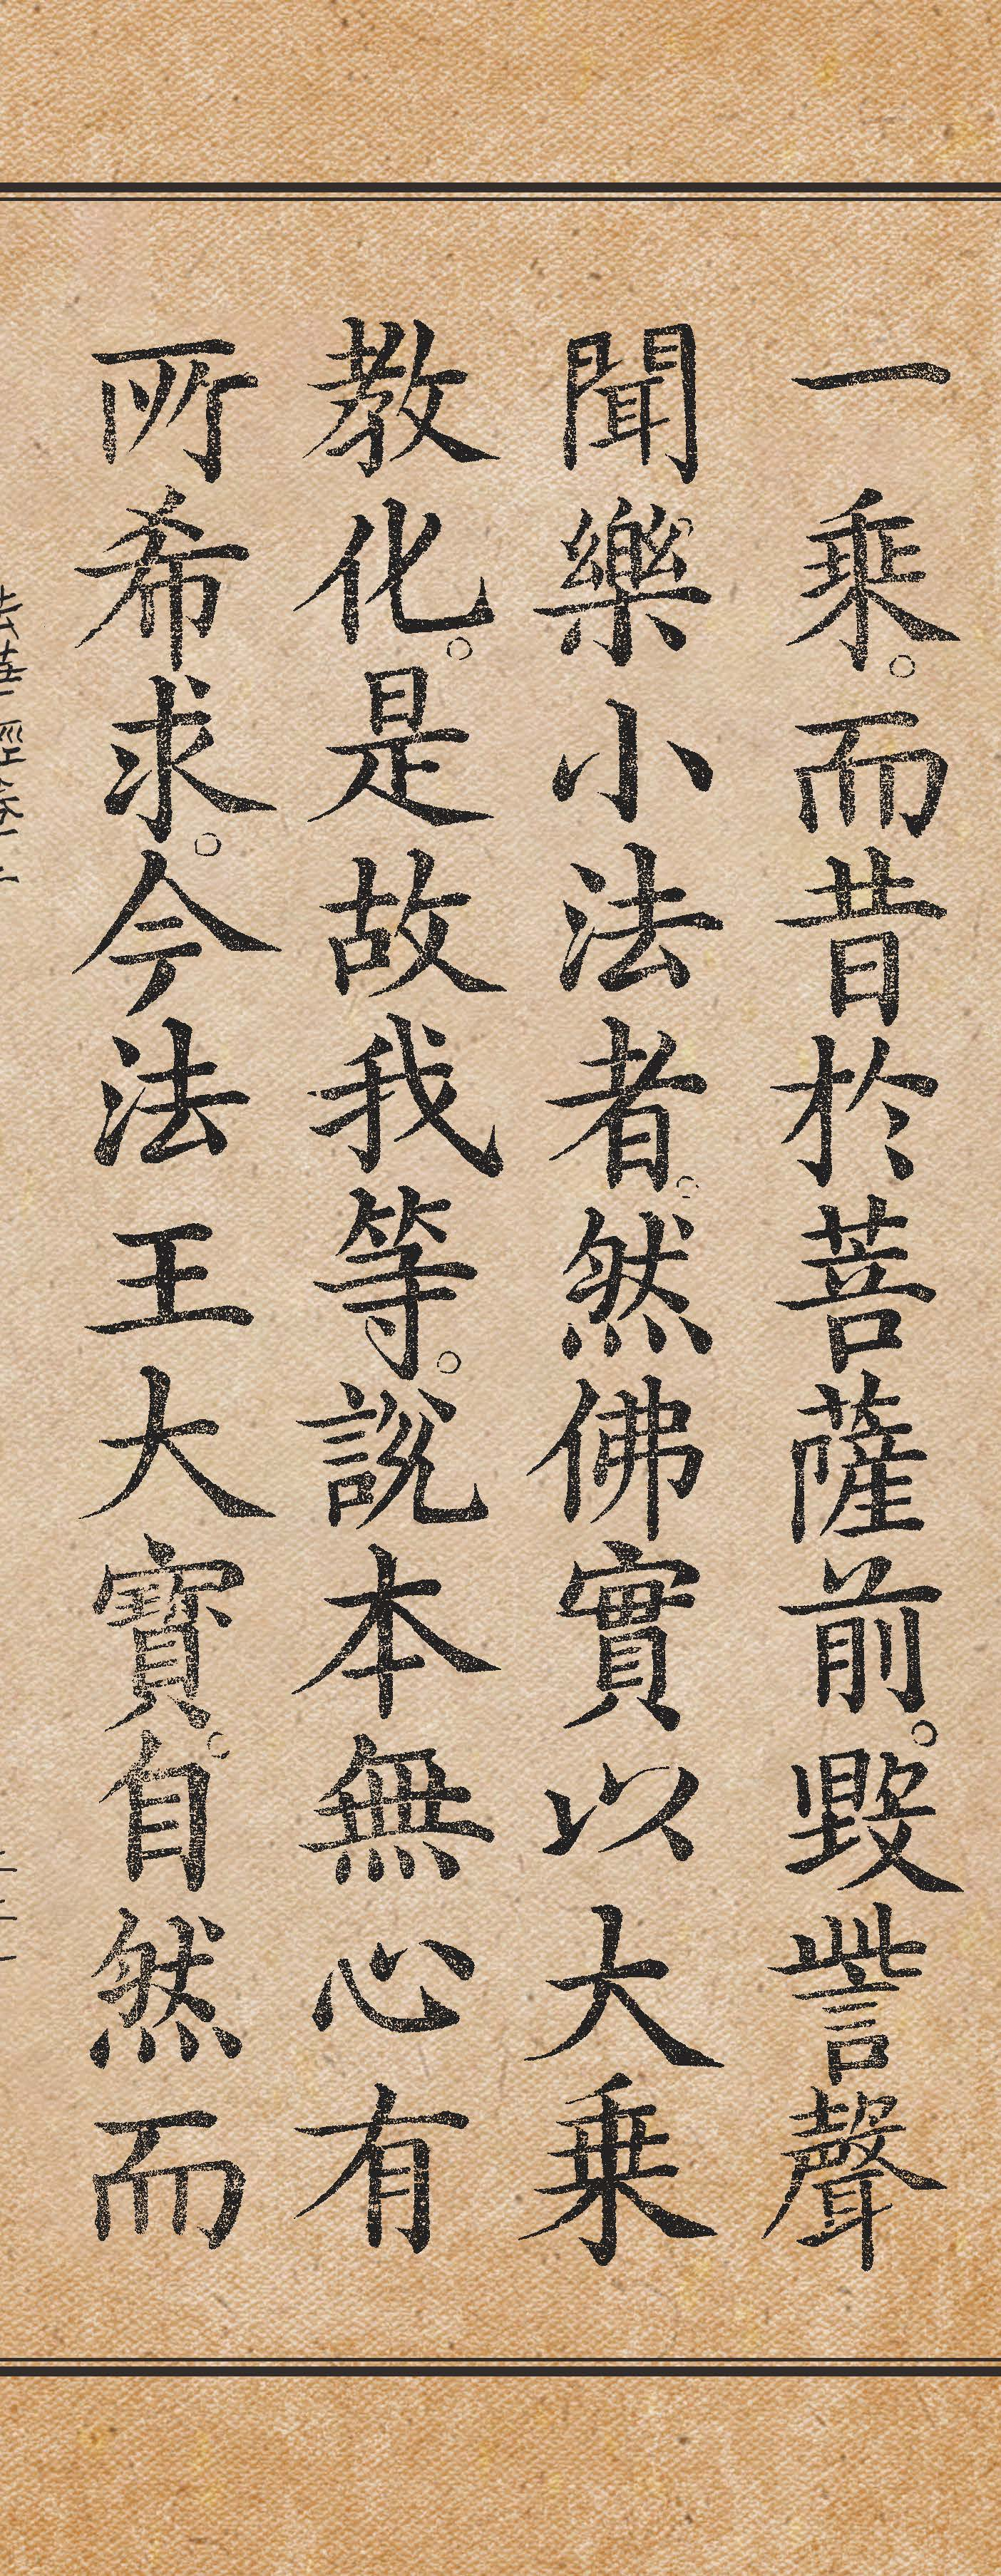 一乘。而昔於菩薩前。毀訾聲
聞樂小法者。然佛實以大乘
教化。是故我等。說本無心有
所希求。今法王大寶。自然而